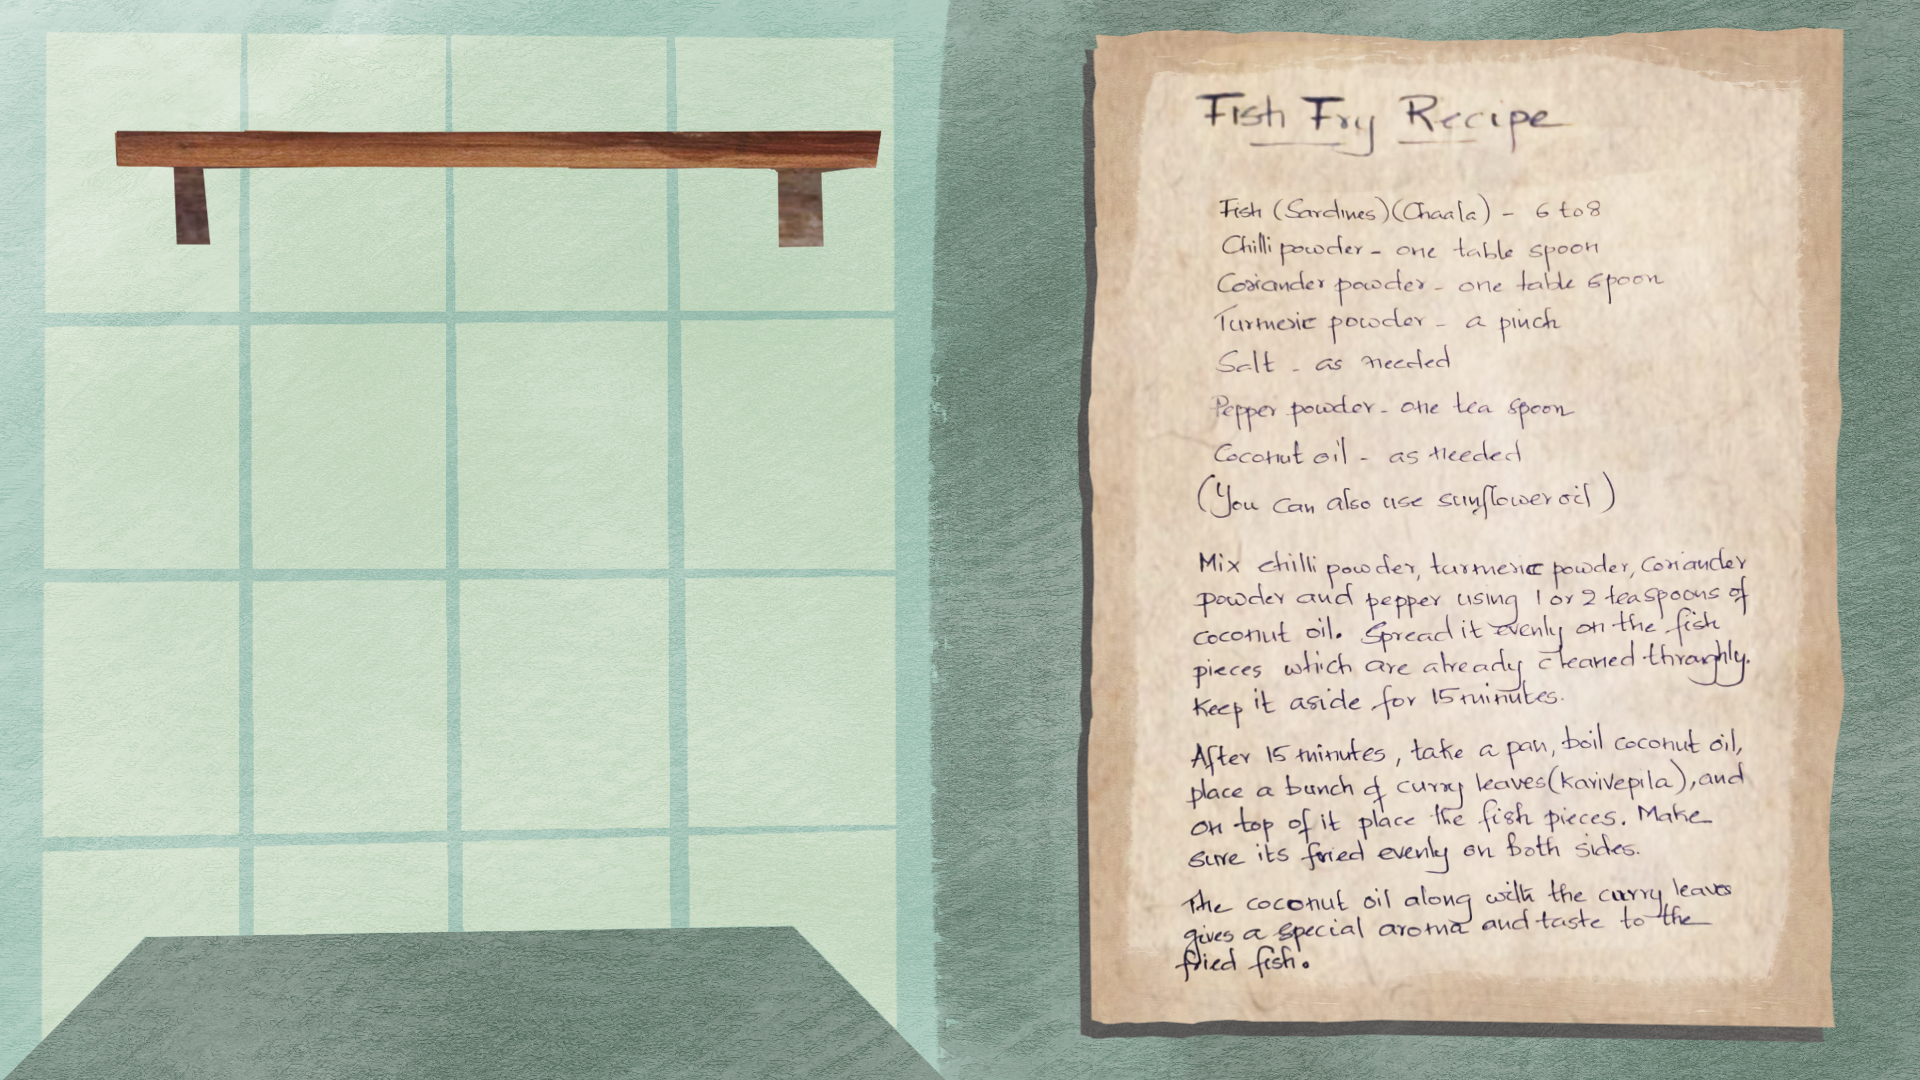 Fish Fry Recipe
Fish (Sardines)(Chaala) - 6 to 8
Chilli powder - one table spoon
Coriander powder - one table spoon
Turmeric powder - a pinch
Salt - as needed
Pepper powder - one tea spoon
Coconut oil - as needed
(You can also use sunflower oil)
Mix chilli powder, turmeric powder, coriander
powder and pepper using 1 or 2 teaspoons of
coconut oil. Spread it evenly on the fish
pieces which are already cleaned throughly.
Keep it aside for 15 minutes.
After 15 minutes, take a pan, boil coconut oil,
place a bunch of curry leaves (karivepila), and
on top of it place the fish pieces. Make
sure its fried evenly on both sides.
The coconut oil along with the curry leaves
gives a special aroma and taste to the
fried fish.